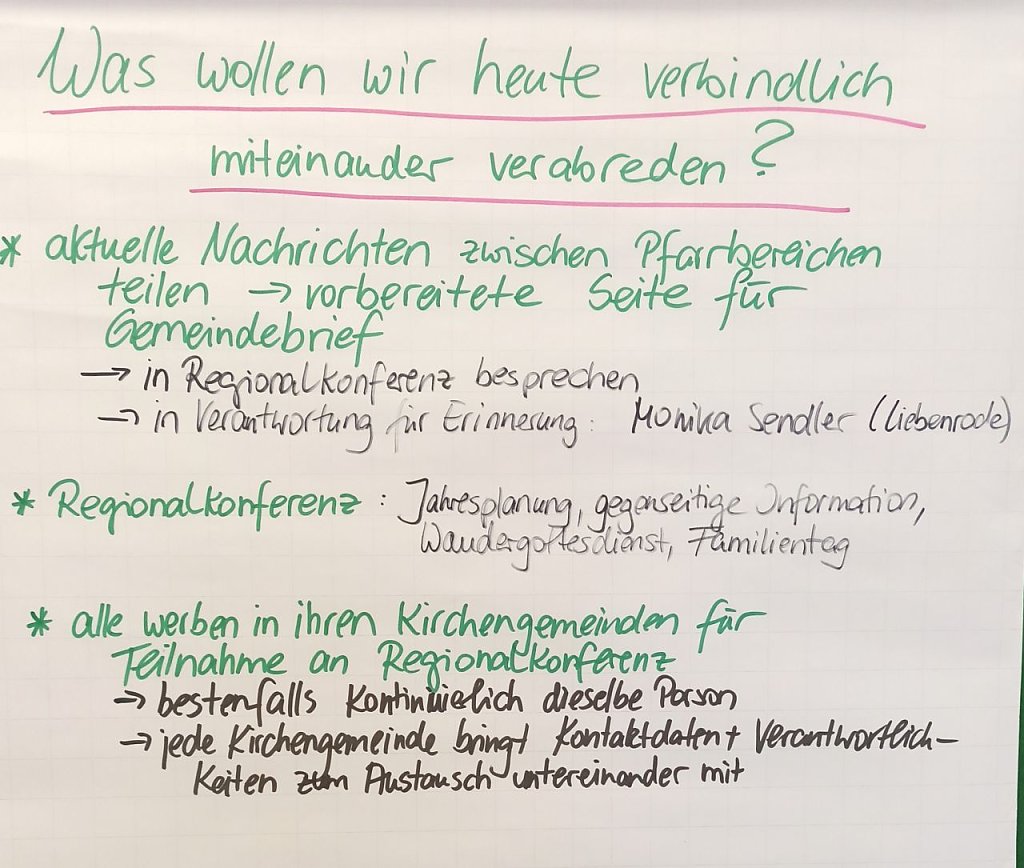 Was wollen wir heute verbindlich
miteinander verabreden?
* aktuelle Nachrichten zwischen Pfarrbereichen
teilen → vorbereitete Seite für
Gemeindebrief
→ in Regionalkonferenz besprechen
→ in Verantwortung für Erinnerung: Monika Sendler (Liebenrode)
* Regionalkonferenz: Jahresplanung, gegenseitige Information,
Wandergottesdienst, Familientag
* alle werben in ihren Kirchengemeinden für
Teilnahme an Regionalkonferenz
→ bestenfalls kontinuielich dieselbe Person
→ jede Kirchengemeinde bringt Kontaktdaten + Verantwortlich-
keiten zum Austausch untereinander mit